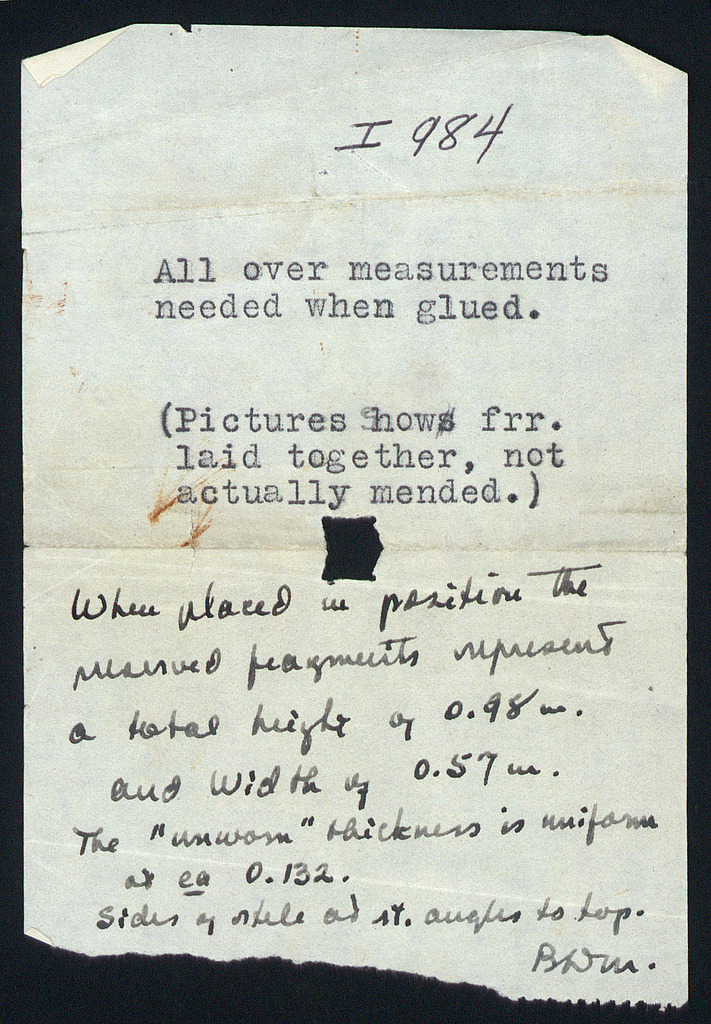 I 984
All over measurements
needed when glued.
(Pictures show frr.
laid together, not
actually mended.)
When placed in position the
preserved fragments represent
a total height of 0.98 m.
and width of 0.57 m.
The "unworn" thickness is uniform
at ea 0.132.
Sides of stele at rt. angles to top.
BDM.